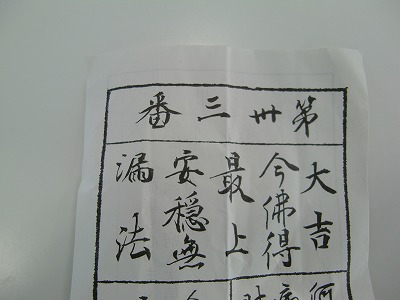 第卅三番
大吉
今佛得
最上
安穏無
漏法